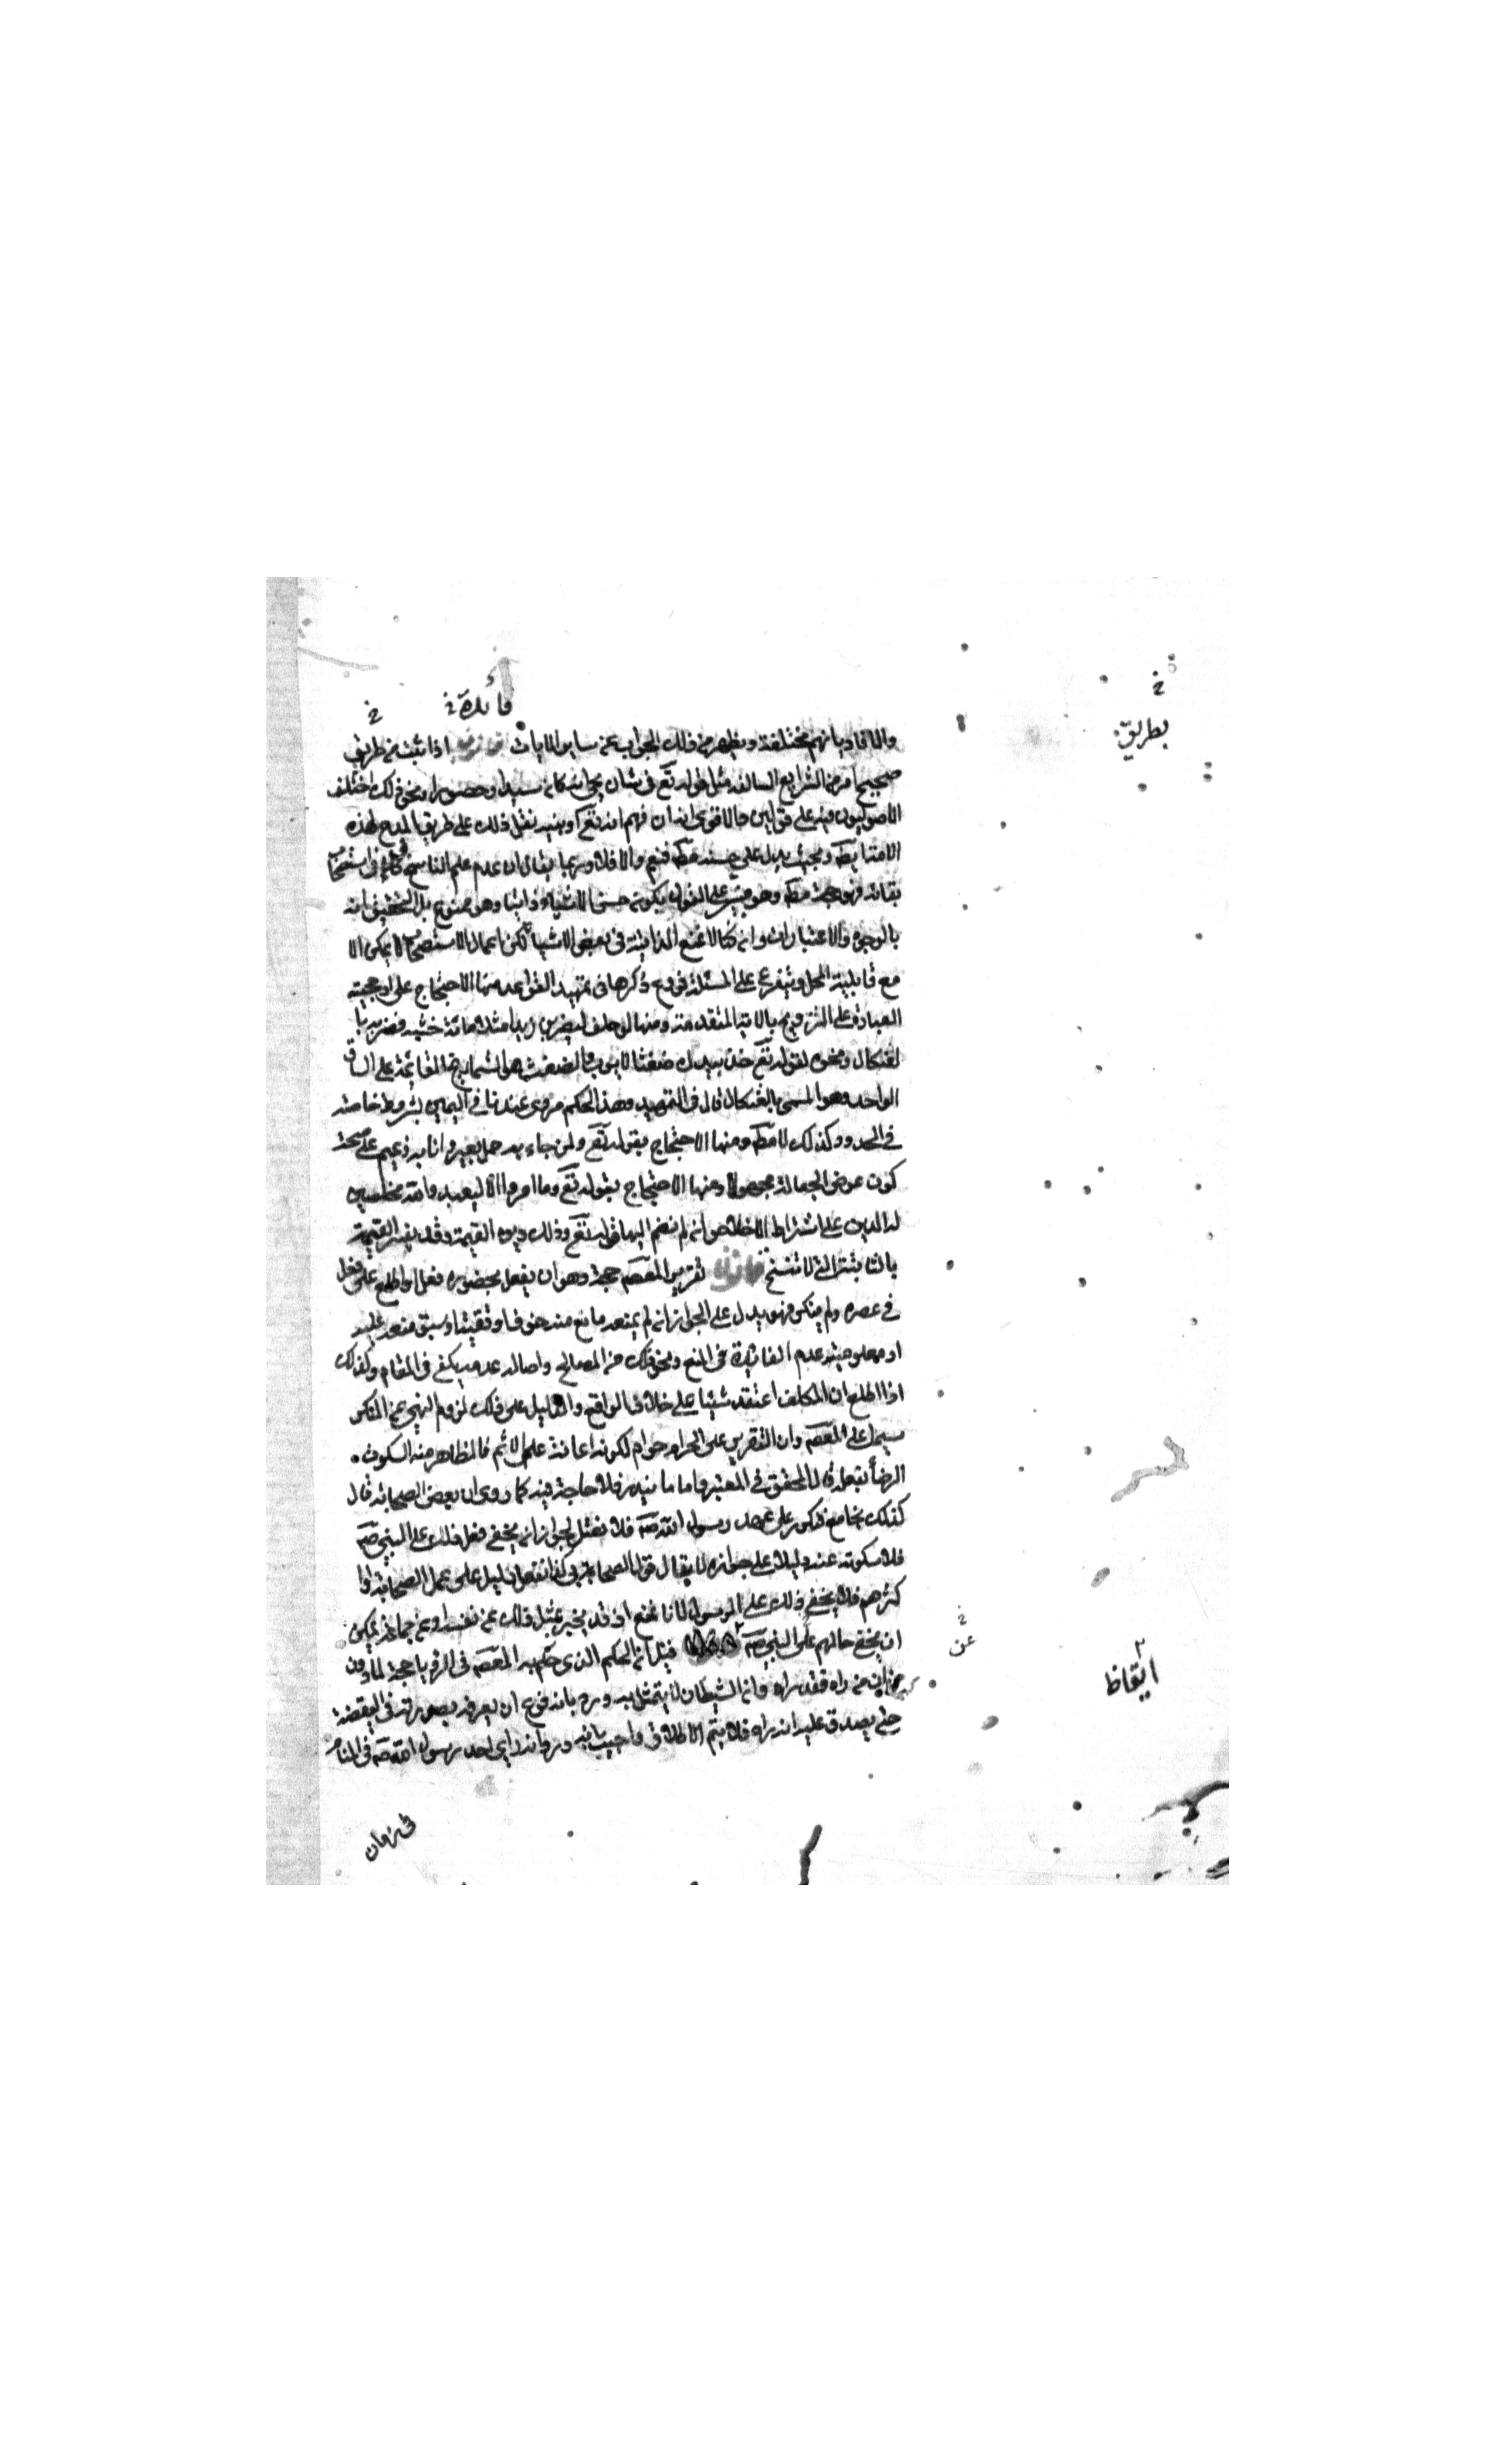 فائدة
والا فاديانهم مختلفة ويظهر من ذلك الجواب عن ساير الايات اذا ثبت من طريق
بطريق
صحيح امر من الشرايع السالفة مثل قوله تع فى شان يحيى انه كان سيدا وحصورا ونحو ذلك اختلف
الاصوليون فيه على قولين والاقوى انه ان فهم انه تع او نبيه نقل ذلك على طريق المدح لهذه
الامة ايضا وبحيث يدل على حسنه مط فنعم والا فلا وربما يقال ان عدم علم الناسخ كاف فى استصحاب
بقائه فهو حجة مط وهو مبنى على القول بكون حسن الاشياء ذاتيا وهو ممنوع بل التحقيق انه
بالوجوه والاعتبارات وان كنا لا نمنع الذاتية فى بعض الاشياء لكن اعمال الاستصحاب لا يمكن الا
مع قابلية المحل ويتفرع على المسئلة فروع ذكرها فى تمهيد القواعد منها الاحتجاج على ارجحية
العبادة على التزويج بالاية المتقدمة ومنها لو حلف ليضربن زيدا مثلا مائة خشبة فضربه با
لعثكال ونحوه لقوله تع خذ بيدك ضغثا لايوب والضغث هو الشماريخ القائمة على الساق
الواحد وهو المسمى بالعثكال قال فى التمهيد وهذا الحكم مروى عندنا فى اليمين بشروط خاصة
فى الحدود كذلك لا مط ومنها الاحتجاج بقوله تع ولمن جاء به حمل بعير وانا به زعيم على صحة
كون عوض الجعالة مجهولا ومنها الاحتجاج بقوله تع وما امروا الا ليعبدوا الله مخلصين
له الدين على اشتراط الاخلاص وان لم نضم اليها قوله تع وذلك دين القيمة وقد يفسر القيمة
بالثابتة التى لا تنسخ قانون تقرير المعصوم حجة وهو ان يفعل بحضوره فعل او اطلع على فعل
فى عصره ولم ينكر فهو يدل على الجواز ان لم يمنعه مانع من خوف او تقية او سبق منعه عليه
او معلومية عدم الفائدة فى المنع ونحو ذلك من المصالح واصالة عدمه يكفى فى المقام وكذلك
اذا اطلع ان المكلف اعتقد شيئا على خلاف الواقع والدليل على ذلك لزوم النهى عن المنكر
سيما على المعصوم وان التقرير على الحرام حرام لكونه اعانة على الاثم فالظاهر منه السكوت
الرضا بفعله قال المحقق فى المعتبر واما ما يندر فلا حجة فيه كما روى ان بعض الصحابة قال
كنا نجامع ونكسل على عهد رسول الله ص فلا نغتسل لجواز ان يخفى فعل ذلك على النبى ص
فلا سكوته عنه دليلا على جوازه لا يقال قول الصحابى كنا نفعل دليل على عمل الصحابة او
اكثرهم فلا يخفى ذلك على الرسول لانا نمنع اذ قد يخبر بمثل ذلك عن نفسه او عن جماعة يمكن
عن
ان يخفى حالهم على النبى ص قيل ان الحكم الذى حكم به المعصوم فى الرؤيا حجة لما ورد
ايقاظ
من ان من راه فقد راه وان الشيطان لا يتمثل به ورد بانه فرع ان يعرفه بصورته فى اليقضة
حتى يصدق عليه انه راه فلا يتم الاطلاق واجيب بانه ورد انه راى احد رسول الله ص فى المنام
فى زمان